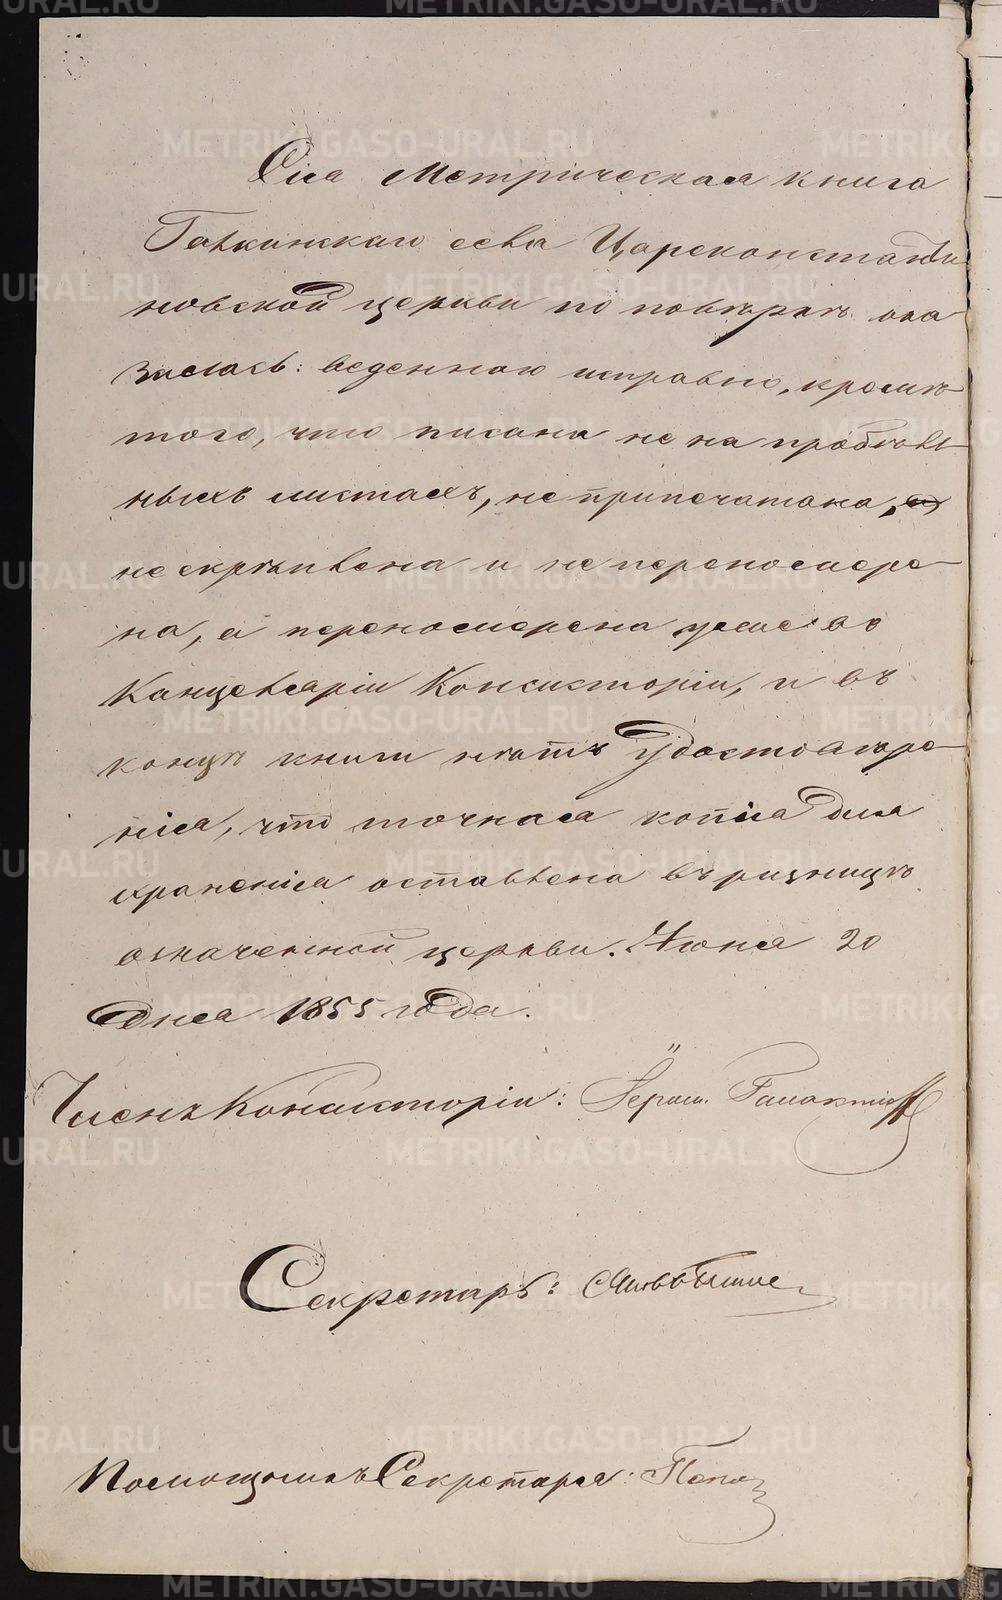 Сія Метрическая книга
Галкинскаго села Цареконстанти
новской церкви по повѣркѣ ока
залась: веденною исправно, кромѣ
того, что писана не на пробѣль
ныхъ листахъ, не припечатана,
не скрѣплена и не переномере
на, а переномерена уже во
Канцеляріи Консисторіи, и въ
концѣ книги нѣтъ удостовѣре
нія, что точная копія для
храненія оставлена въ ризницѣ
означенной церкви. Июня 20
дня 1855 года.
Членъ Консисторіи: Іером. Галактіон
Секретарь:
Помощникъ Секретаря: Попо
METRIKI.GASO-URAL.RU